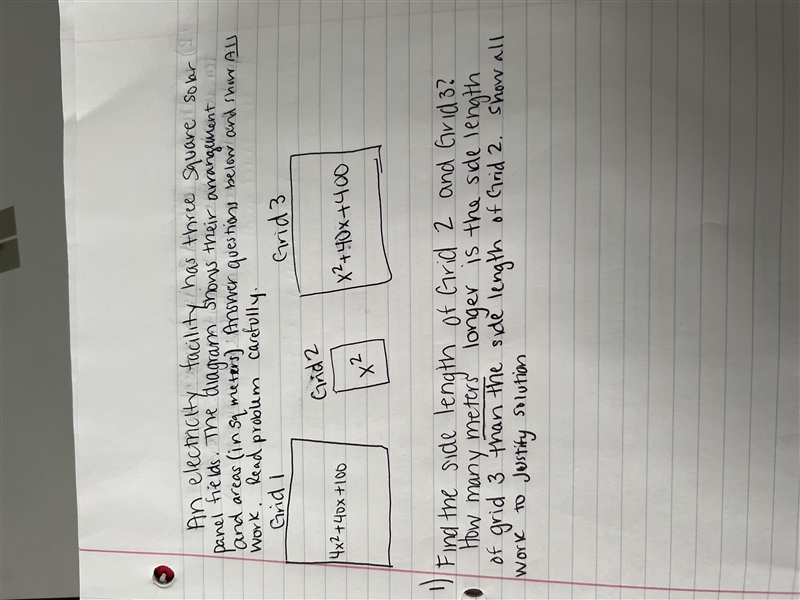 An electricity facility has three square solar
panel fields. The diagram shows their arrangement
and areas (in sq meters) Answer questions below and show All
work. Read problem carefully.
Grid 1
4x²+40x+100
Grid 2
x²
Grid 3
x²+40x+400
1) Find the side length of Grid 2 and Grid 3?
How many meters longer is the side length
of grid 3 than the side length of Grid 2. Show all
work to justify solution